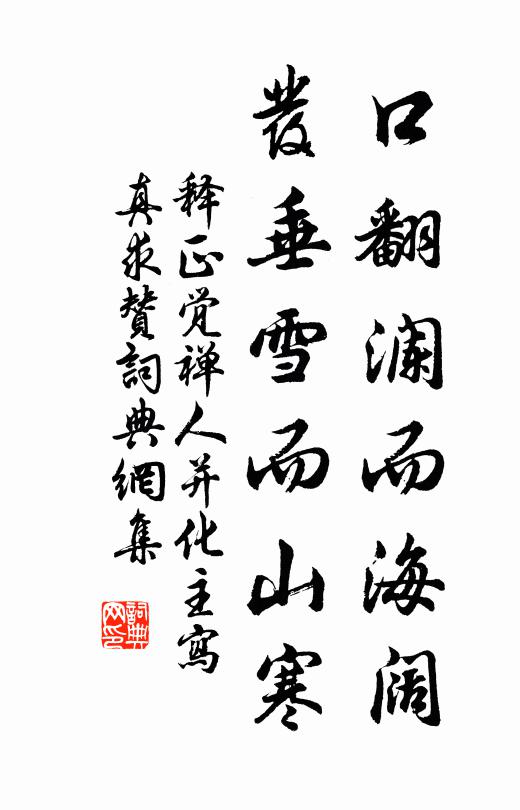 口翻澜而海阔
发垂雪而山寒
释正觉禅人并化主写
真求赞詞典網集
詞典
网印